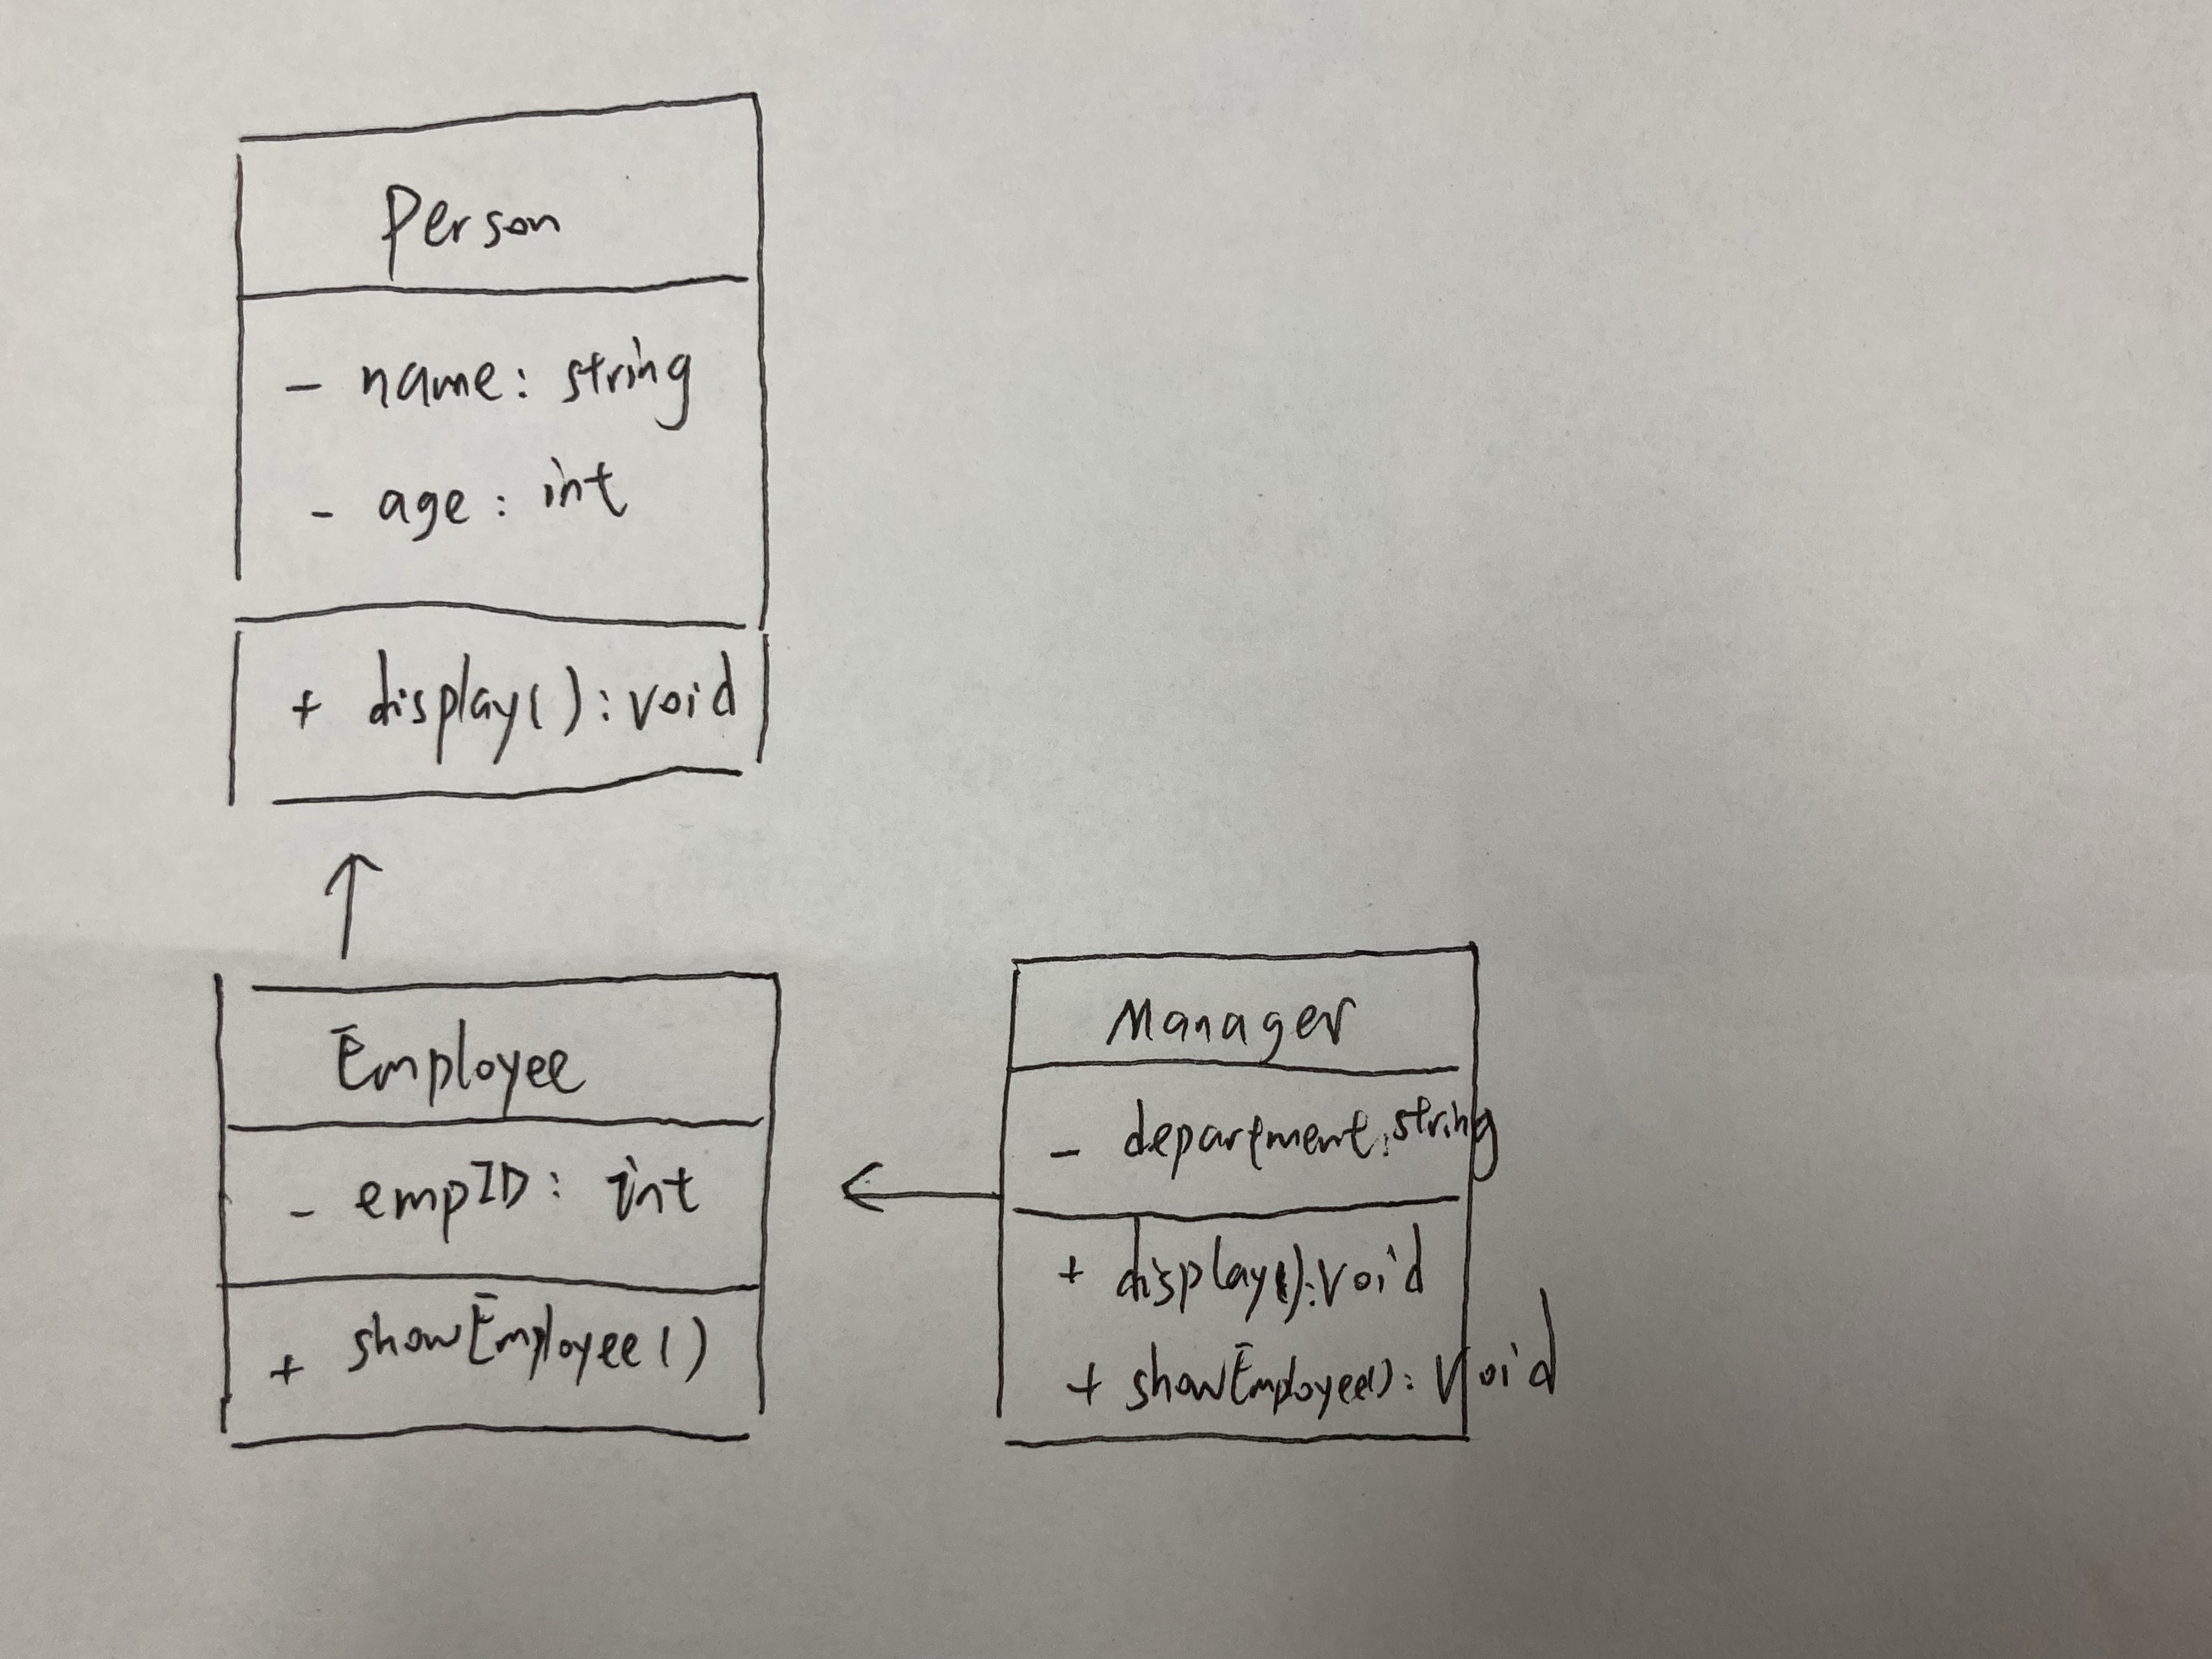 Person
- name: string
- age: int
+ display(): void
Employee
- empID: int
+ showEmployee()
Manager
- department: string
+ display(): void
+ showEmployee(): void